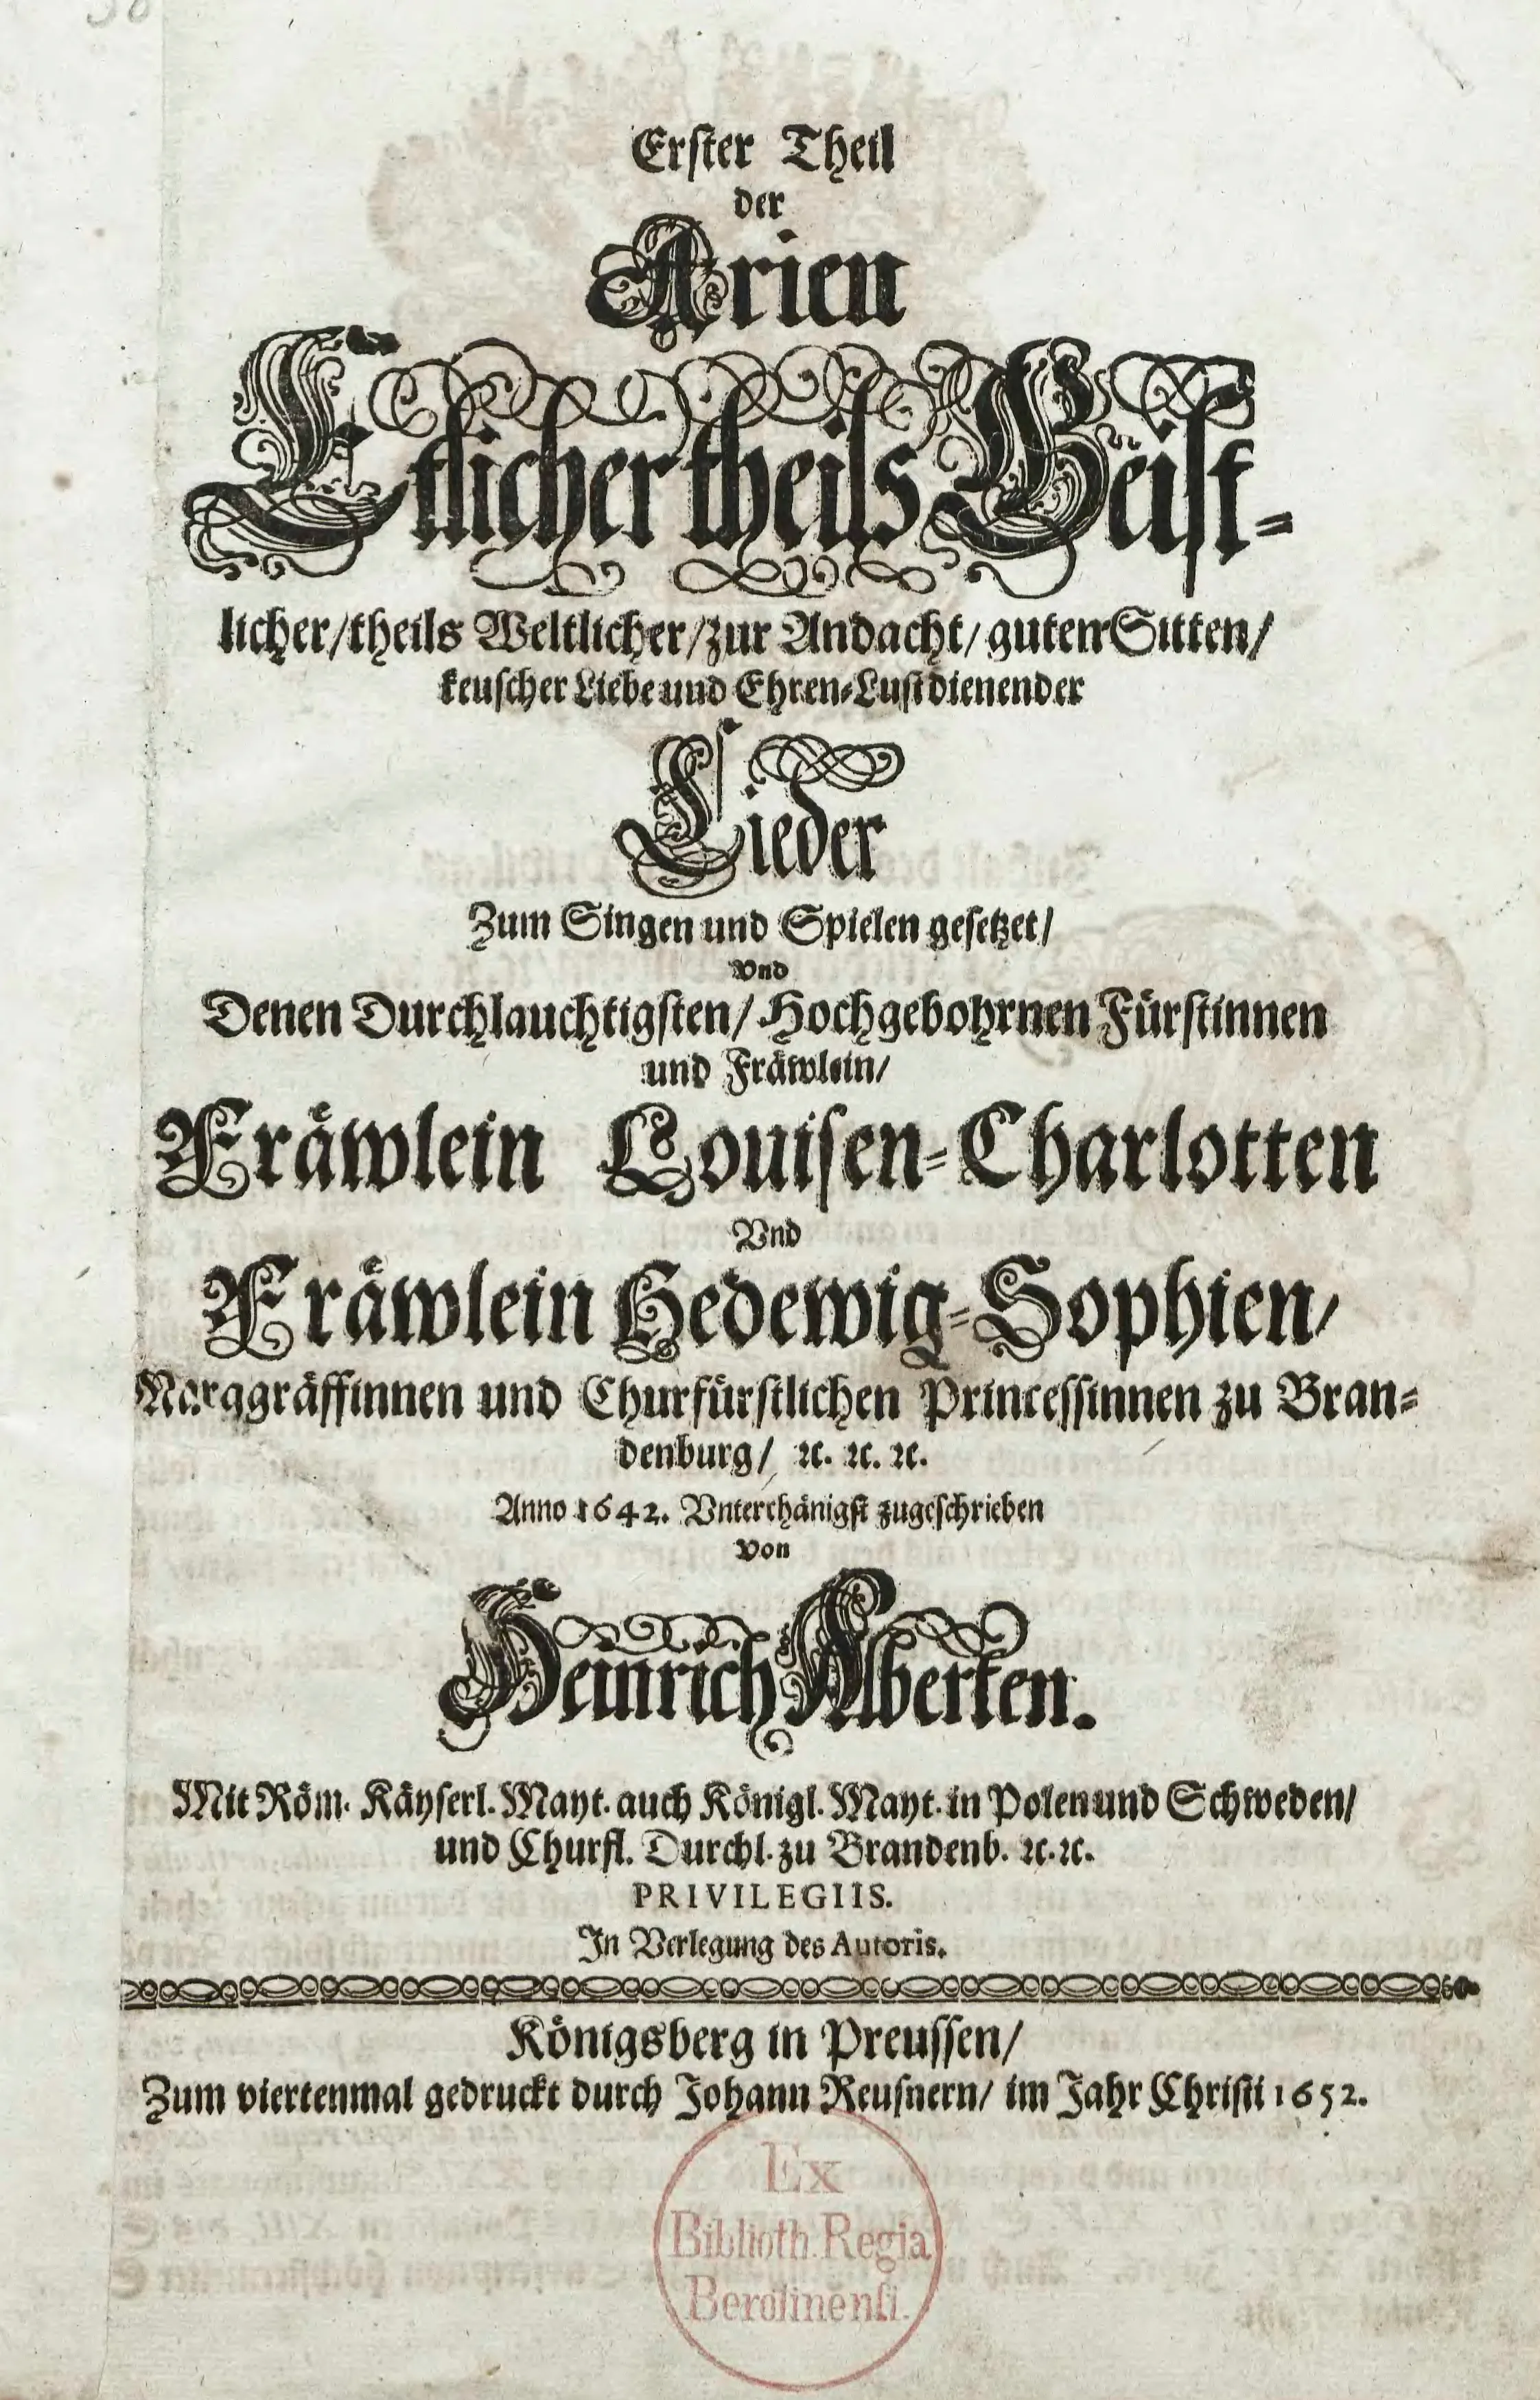 Erster Theil
der
Arien
Etlicher theils Geist-
licher/ theils Weltlicher/ zur Andacht/ guten Sitten/
keuscher Liebe und Ehren-Lust dienender
Lieder
Zum Singen und Spielen gesetzet/
Vnd
Denen Durchlauchtigsten/ Hochgebohrnen Fürstinnen
und Fräwlein/
Fräwlein Louisen-Charlotten
Vnd
Fräwlein Hedewig-Sophien/
Marggräffinnen und Churfürstlichen Princessinnen zu Bran-
denburg/ ꝛc. ꝛc. ꝛc.
Anno 1642. Vnterthänigst zugeschrieben
Von
Heinrich Alberten.
Mit Röm. Käyserl. Mayt. auch Königl. Mayt. in Polen und Schweden/
und Churfl. Durchl. zu Brandenb. ꝛc. ꝛc.
PRIVILEGIIS.
In Verlegung des Autoris.
Königsberg in Preussen/
Zum viertenmal gedruckt durch Johann Reusnern/ im Jahr Christi 1652.
Ex
Biblioth. Regia
Berolinensi.